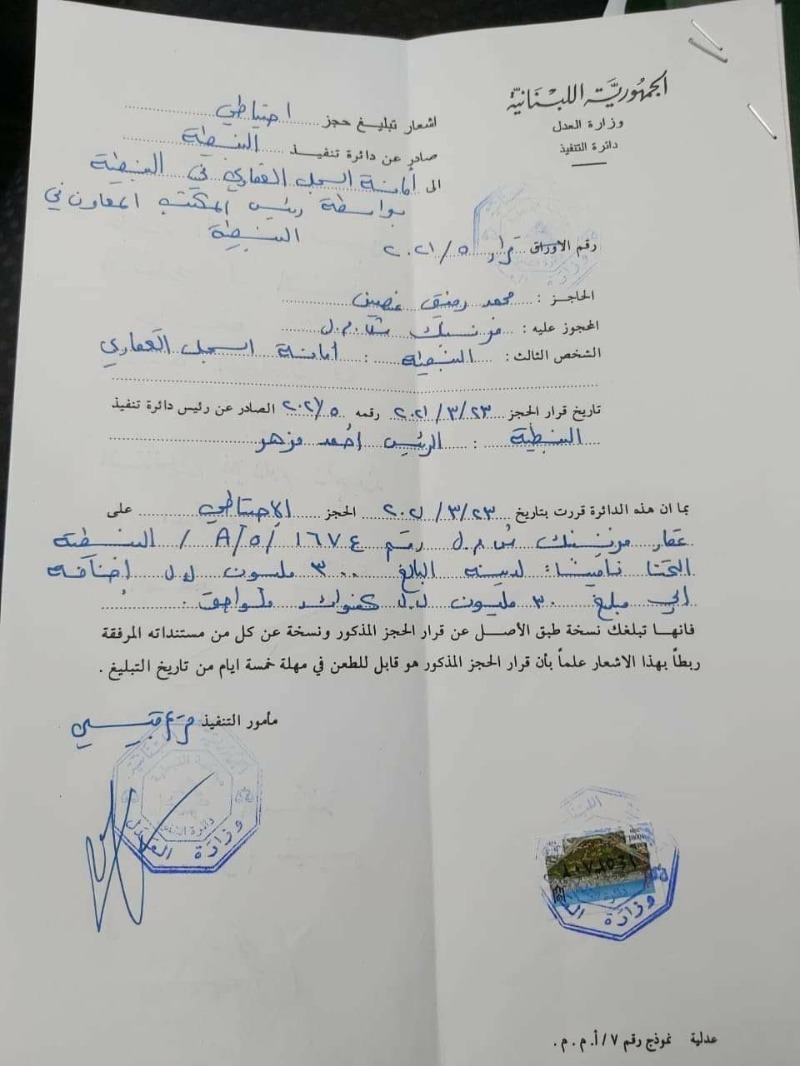 الجمهورية اللبنانية
وزارة العدل
دائرة التنفيذ
اشعار تبليغ حجز احتياطي
صادر عن دائرة تنفيذ النبطية
الى أمانة السجل العقاري في النبطية
بواسطة رئيس المكتب المعاون في
النبطية
رقم الاوراق قرار ٥/٢٠٢١
الحاجز : محمد رضى
المحجوز عليه : فرنسبنك ش.م.ل
الشخص الثالث : النبطية : أمانة السجل العقاري
تاريخ قرار الحجز ٢٠٢١/٣/٢٣ رقمه ٢٠٢١/٥ الصادر عن رئيس دائرة تنفيذ
النبطية : الرئيس احمد مزهر
بما ان هذه الدائرة قررت بتاريخ ٢٠٢١/٣/٢٣ الحجز الاحتياطي على
عقار فرنسبنك ش.م.ل رقم ١٦٧٤/٥/A / النبطية
التحتا تأمينا: لدينه البالغ ٣٠٠ مليون ل.ل إضافة
إلى مبلغ ٣٠ مليون ل.ل كفوائد ولواحق.
فانها تبلغك نسخة طبق الأصل عن قرار الحجز المذكور ونسخة عن كل من مستنداته المرفقة
ربطاً بهذا الاشعار علماً بأن قرار الحجز المذكور هو قابل للطعن في مهلة خمسة ايام من تاريخ التبليغ .
مأمور التنفيذ
وزارة العدل
دائرة التنفيذ
عدلية نموذج رقم ٧ / أ . م . م .